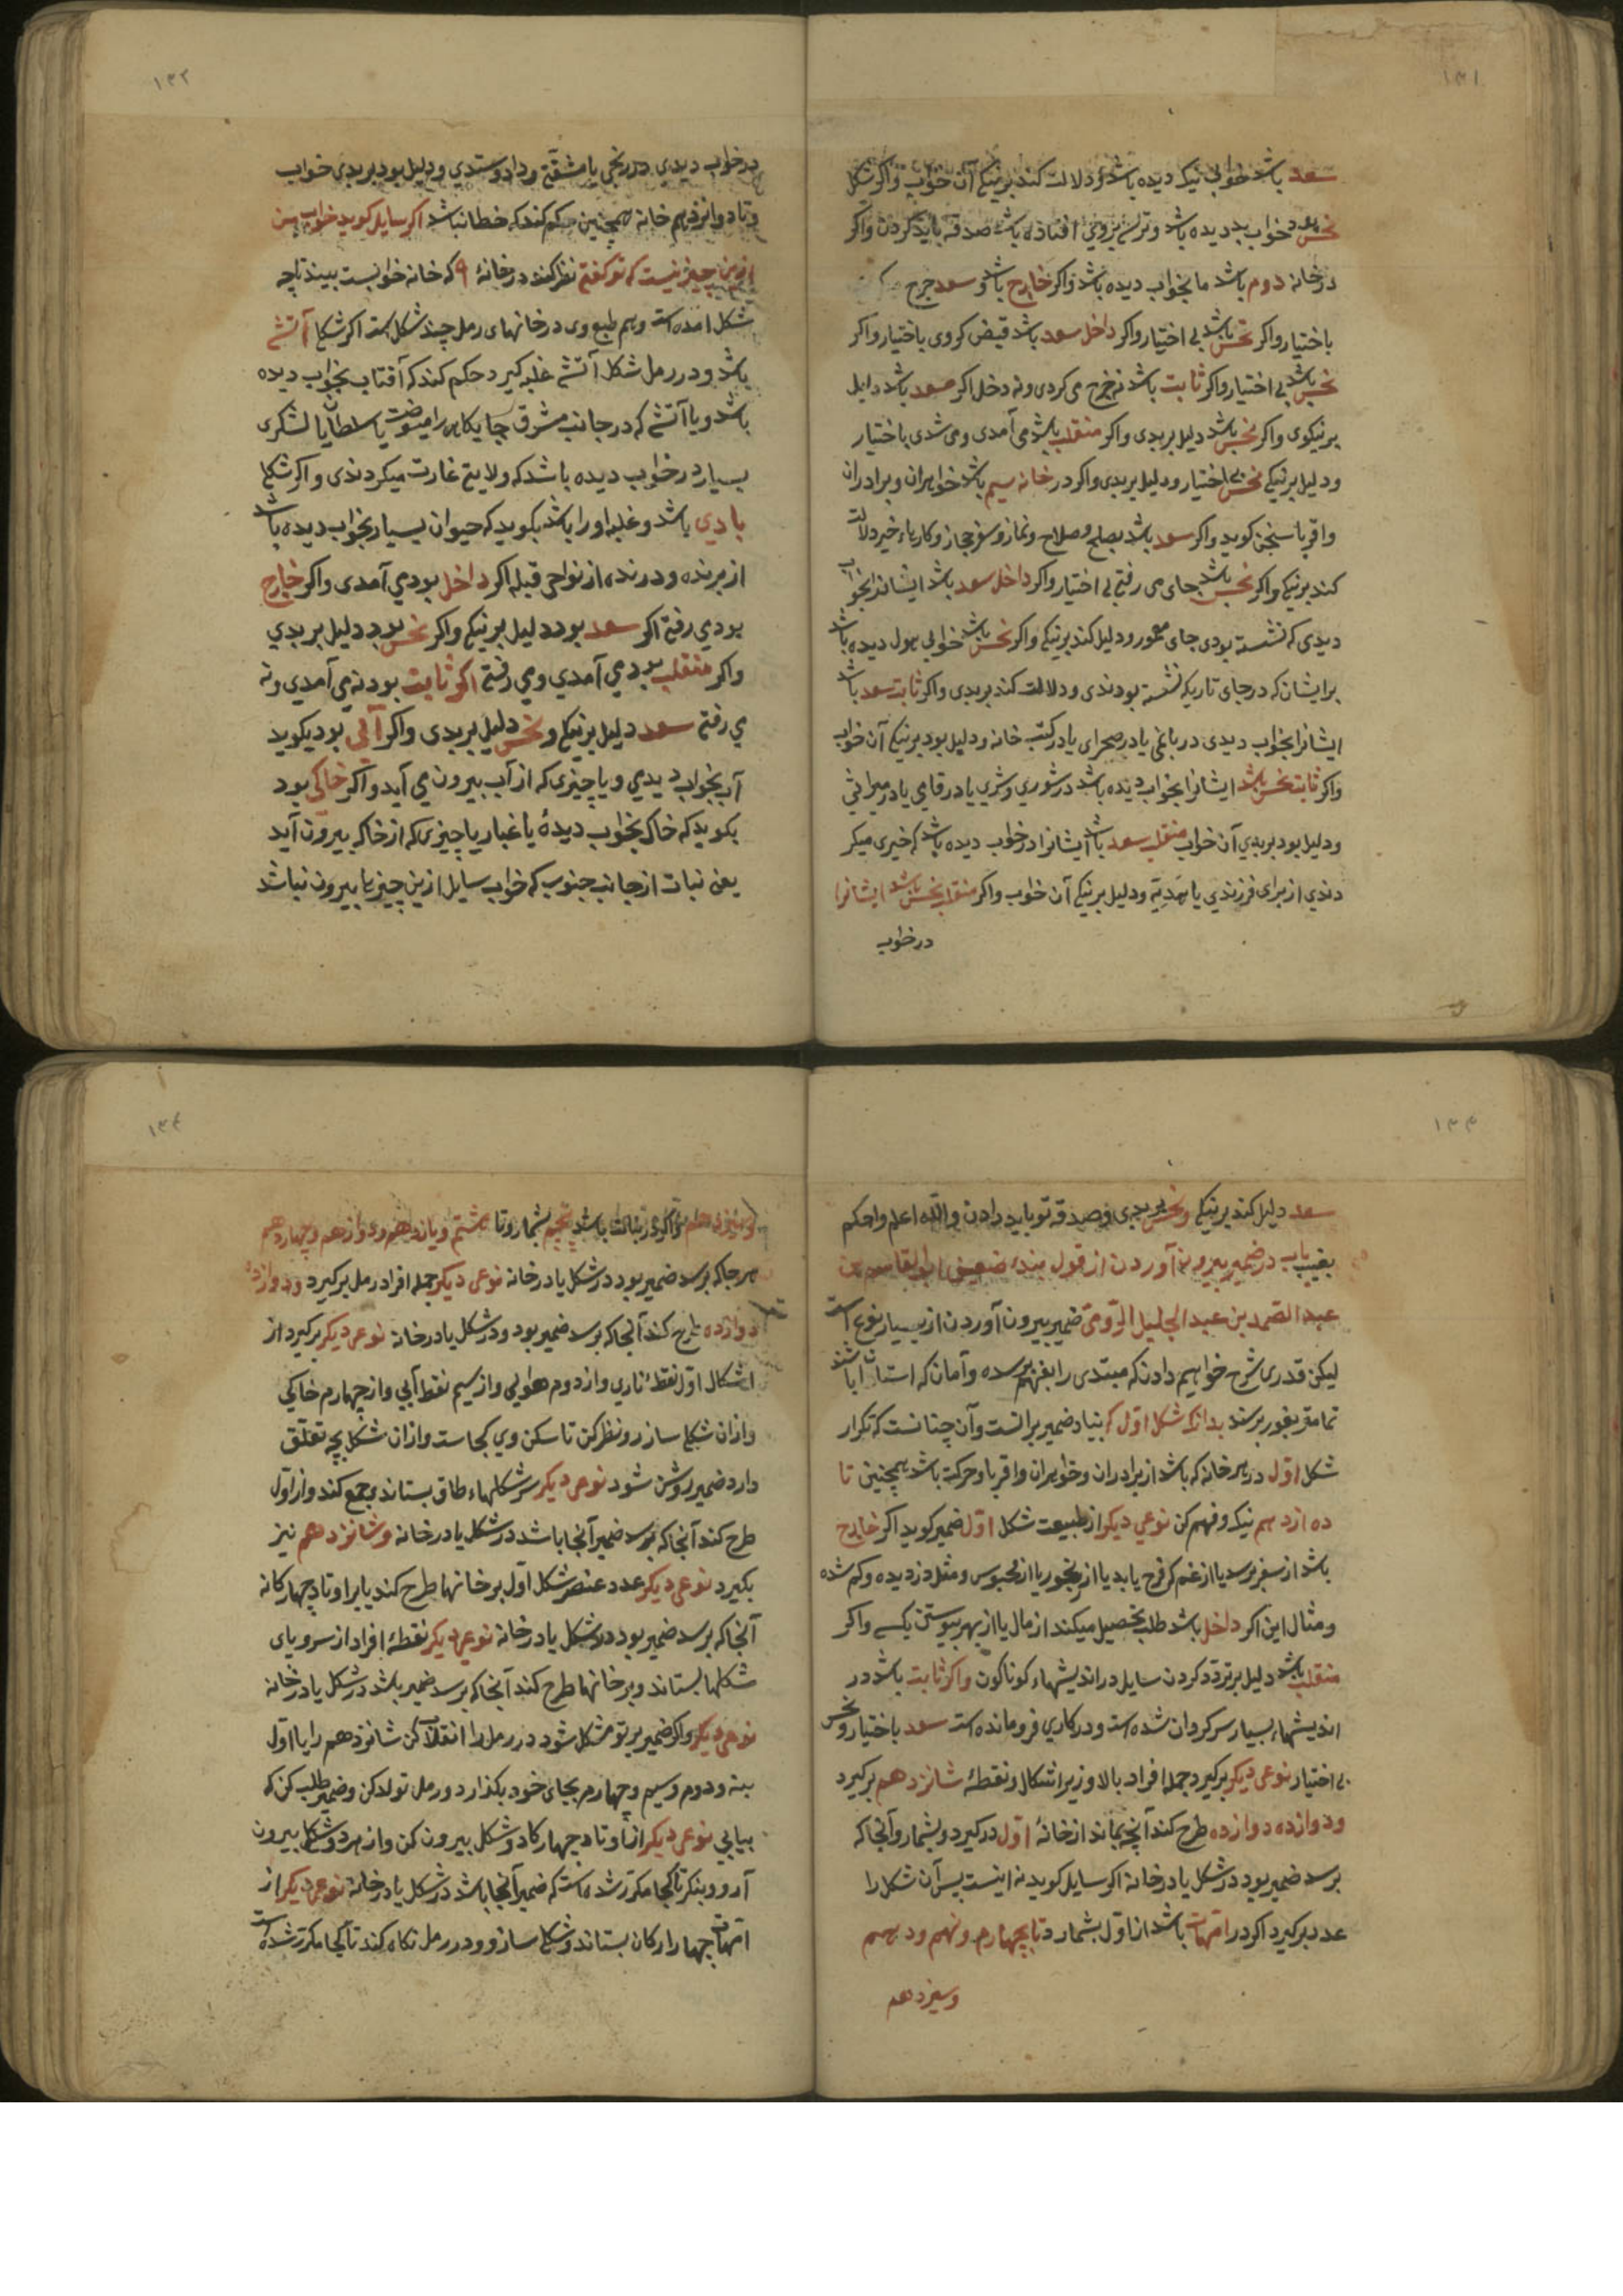 ۱۳۱
سعد باشد خوابی نیک دیده باشد و دلالت کند بر نیکی آن خواب و اکر شکل
نحس بود خواب بد دیده باشد و ترس بروی افتاده باشد صدقه باید کردن واکر
در خانه دوم باشد ما بخواب دیده باشد واکر خارج باشد و سعد خرج
باختیار واکر نحس باشد بی اختیار واکر داخل سعد باشد قبض کردی باختیار واکر
نحس باشد بی اختیار واکر ثابت باشد نه خرج می کردی ونه دخل اکر سعد باشد دلیل
بر نیکوی واکر نحس باشد دلیل بر بدی واکر منقلب باشد می آمدی ومی شدی باختیار
ودلیل بر نیکی نحس بی اختیار ودلیل بر بدی واکر در خانه سیم باشد خواهران وبرادران
واقربا سخن کوید واکر سعد باشد بصلح وصلاح ونماز وسفر حجاز وکارهاء خیر دلالت
کند بر نیکی واکر نحس باشد جای می رفتی بی اختیار واکر داخل سعد باشد ایشانرا بخواب
دیدی که نشسته بودی جای معمور ودلیل کند بر نیکی واکر نحس باشد خوابی هول دیده باشد
بر ایشان که در جای تاریک نشسته بودندی ودلالت کند بر بدی واکر ثابت سعد باشد
ایشانرا بخواب دیدی در باغی یا در صحرای یا در کتب خانه ودلیل بود بر نیکی آن خواب
واکر ثابت نحس باشد ایشانرا بخواب دیده باشد در شوری وشری یا در قامی یا در میراثی
ودلیل بود بر بدی آن خواب منقلب سعد باشد ایشانرا در خواب دیده باشد که خیری میکر
دندی از برای فرزندی یا هدیه ودلیل بر نیکی آن خواب واکر منقلب نحس باشد ایشانرا
در خواب
۱۳۲
در خواب دیدی در رنجی یا مشقتی و دادوستدی ودلیل بود بر بدی خواب
وتا دوازدهم خانه همچنین حکم کند که خطا نباشد اکر سایل کوید خواب من
ازین چیز نیست که تو کفتی نظر کند در خانهٔ ۹ که خانه خوابست ببیند تا چه
شکل آمده است وهم طبع وی در خانهای رمل چند شکل است اکر شکل آتشی
باشد و در رمل شکل آتشی غلبه کیرد حکم کند که آفتاب بخواب دیده
باشد ویا آتشی که در جانب مشرق جایکاهی را میسوخت یا سلطان یا لشکری
بسیار در خواب دیده باشد که ولایتی غارت میکردندی واکر شکل
بادی باشد وغلبه او را باشد بکوید که حیوان بسیار بخواب دیده باشد
از پرنده ودرنده از نواحی قبله اکر داخل بود می آمدی واکر خارج
بود می رفتی اکر سعد بود دلیل بر نیکی واکر نحس بود دلیل بر بدی
واکر منقلب بود می آمدی ومی رفتی اکر ثابت بود نه می آمدی ونه
می رفتی سعد دلیل بر نیکی ونحس دلیل بر بدی واکر آبی بود بکوید
آب بخواب دیدی ویا چیزی که از آب بیرون می آید واکر خاکی بود
بکوید که خاک بخواب دیدهٔ یا غبار یا چیزی که از خاک بیرون آید
یعنی نبات از جانب جنوب که خواب سایل ازین چیزها بیرون نباشد
۱۳۳
سعد دلیل کند بر نیکی ونحس بر بدی وصدقه تو باید دادن والله اعلم واحکم
باب در ضمیر بیرون آوردن از قول بندهٔ ضعیف ابو القاسم بن
عبد الصمد بن عبد الجلیل الرومی ضمیر بیرون آوردن از بسیار نوع است
لیکن قدری شرح خواهیم دادن که مبتدی را بفهم برسد و آمان که استادان باشند
تمامی بغور برسند بدانک شکل اول که بنیاد ضمیر برانست وآن چنانست که تکرار
شکل اول در هر خانه که باشد از برادران وخواهران واقربا وحرکت باشد همچنین تا
دوازدهم نیک وفهم کن نوعی دیکر از طبیعت شکل اول ضمیر کوید اکر خارج
باشد از سفر پرسد یا از غم کی فرج یابد یا از رنجور یا از محبوس ومثل دزدیده وکم شده
ومثال این اکر داخل باشد طلب تحصیل میکند از مال یا از بهر پیوستن بکسی واکر
منقلب باشد دلیل بر تردد کردن سایل در اندیشهاء کوناکون واکر ثابت باشد در
اندیشهاء بسیار سرکردان شده است ودر کاری فرو مانده است سعد باختیار ونحس
بی اختیار نوعی دیکر برکیرد جمله افراد بالا وزیر اشکال ونقطهٔ شانزدهم برکیرد
ودوازده دوازده طرح کند آنچ بماند از خانهٔ اول در کیرد وبشمارد آنجا که
برسد ضمیر بود در شکل یا در خانه اکر سایل کوید نه اینست پس آن شکل را
عدد برکیرد اکر در امهات باشد از اول بشمارد تا بچهارم ونهم ودهم
وسیزدهم
۱۳۴
وسیزدهم واکر در بنات باشد پنجم بشمارد تا هشتم ویازدهم ودوازدهم وچهاردهم
هر جا که برسد ضمیر بود در شکل یا در خانه نوعی دیکر جمله افراد رمل برکیرد ودوازده
دوازده طرح کند آنجا که برسد ضمیر بود در شکل یا در خانه نوعی دیکر برکیرد از
اشکال اول نقطهٔ ناری واز دوم هوایی واز سیم نقط آبی واز چهارم خاکی
وازان شکلی سازد ونظر کن تا سکن وی کجاست وازان شکل بچه تعلق
دارد ضمیر روشن شود نوعی دیکر سر شکلهاء طاق بستاند وجمع کند واز اول
طرح کند آنجا که برسد ضمیر آنجا باشد در شکل یا در خانه وشانزدهم نیز
بکیرد نوعی دیکر عدد عنصر شکل اول بر خانها طرح کند یا بر اوتاد چهارکانه
آنجا که برسد ضمیر بود در شکل یا در خانه نوعی دیکر نقطهٔ افراد از سر وپای
شکلها بستاند وبر خانها طرح کند آنجا که برسد ضمیر باشد در شکل یا در خانه
نوعی دیکر واکر ضمیر بر تو مشکل شود در رمل را انقلاب کن شانزدهم را با اول
بنه ودوم وسیم وچهارم بجای خود بکذار ورمل تولد کن وضمیر طلب کن که
بیابی نوعی دیکر از اوتاد چهارکانه دو شکل بیرون کن واز هر دو شکلی بیرون
آر وبنکر تا کجا مکرر شده است که ضمیر آنجا باشد در شکل یا در خانه نوعی دیکر از
امهات چهار ارکان بستاند وشکلی سازد ودر رمل نکاه کند تا کجا مکرر شده است